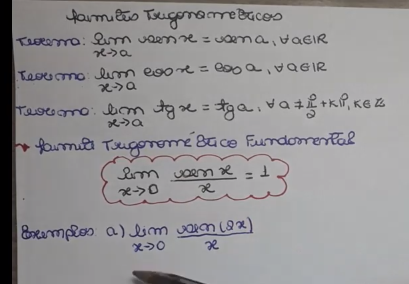 Limites Trigonométricos
Teorema: lim x→a sen x = sen a, ∀ a ∈ IR
Teorema: lim x→a cos x = cos a, ∀ a ∈ IR
Teorema: lim x→a tg x = tg a, ∀ a ≠ π/2 + kπ, k ∈ Z
→ Limite Trigonométrico Fundamental
lim x→0 sen x / x = 1
Exemplos a) lim x→0 sen(2x) / x